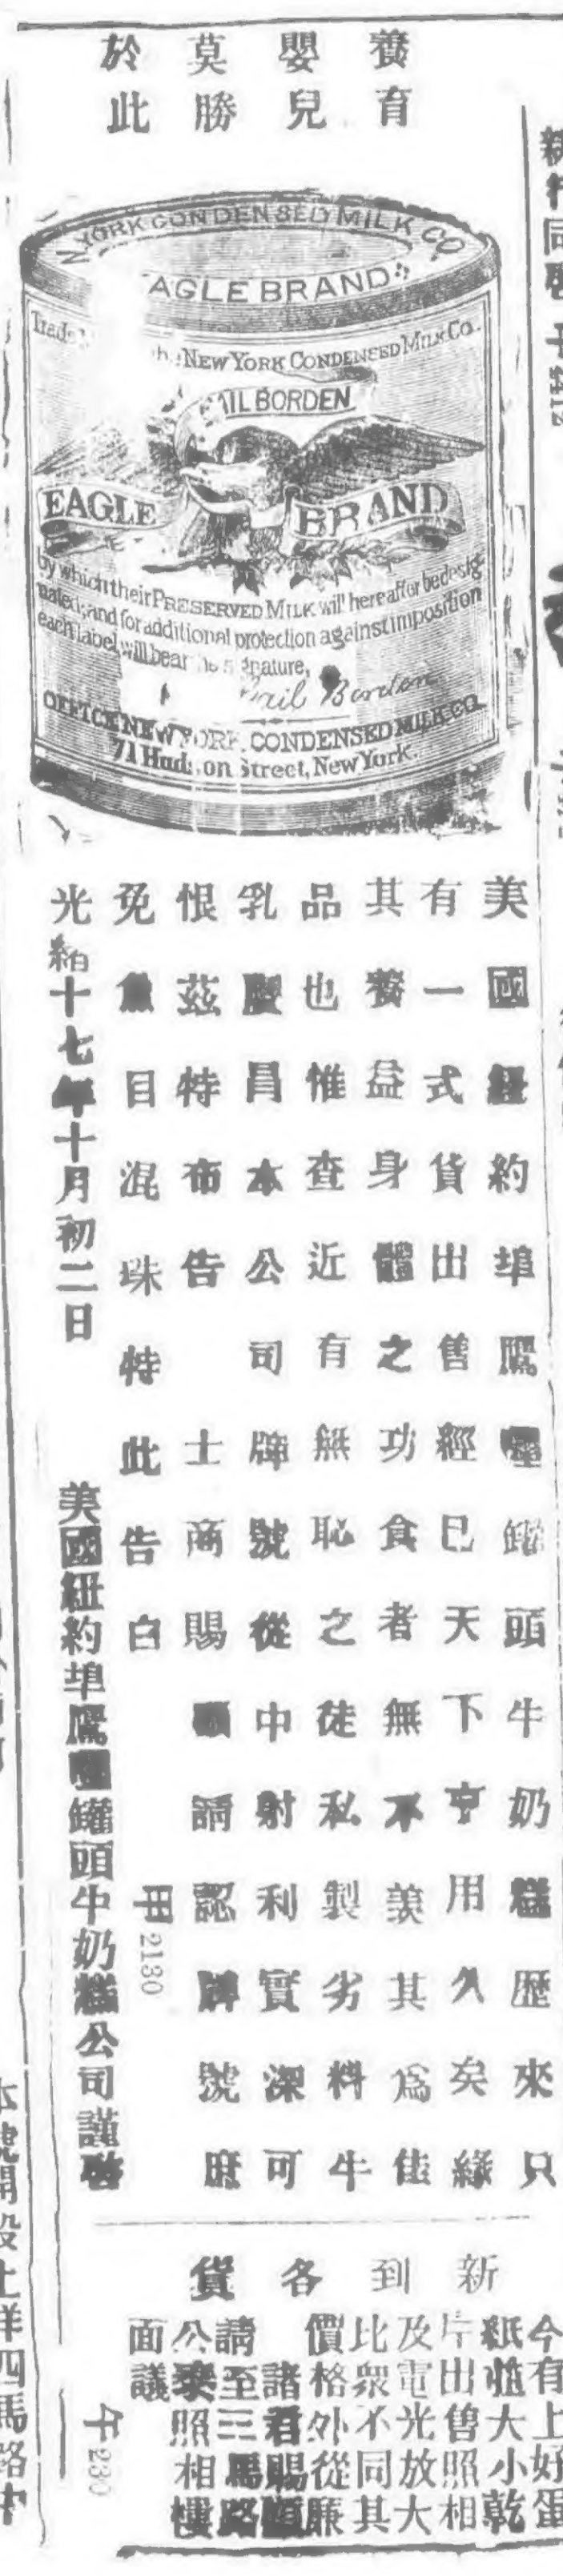 養育
嬰兒
莫勝
於此
N. YORK CONDENSED MILK CO.
EAGLE BRAND
Trade
the NEW YORK CONDENSED MILK CO.
GAIL BORDEN
EAGLE BRAND
by which their PRESERVED MILK will hereafter be desig-
nated; and for additional protection against imposition
each label will bear the signature,
Gail Borden
OFFICE NEW YORK CONDENSED MILK CO.
71 Hudson Street, New York.
美國紐約埠鷹嘜罐頭牛奶糕歷來只
有一式貨出售經已天下亨用久矣緣
其養益身體之功食者無不羨其為佳
品也惟查近有無恥之徒私製劣料牛
乳膠昌本公司牌號從中射利實深可
恨茲特布告 士商賜顧請認牌號庶
免魚目混珠特此告白 田 2130
光緒十七年十月初二日
美國紐約埠鷹嘜罐頭牛奶糕公司謹啓
新到各貨
今有上好蛋
紙並大小乾
片出售照相
及電光放大
比衆不同其
價格外從廉
諸君賜顧
請至三馬路
公泰照相樓
面議
午 230
本號開設上洋四馬路中